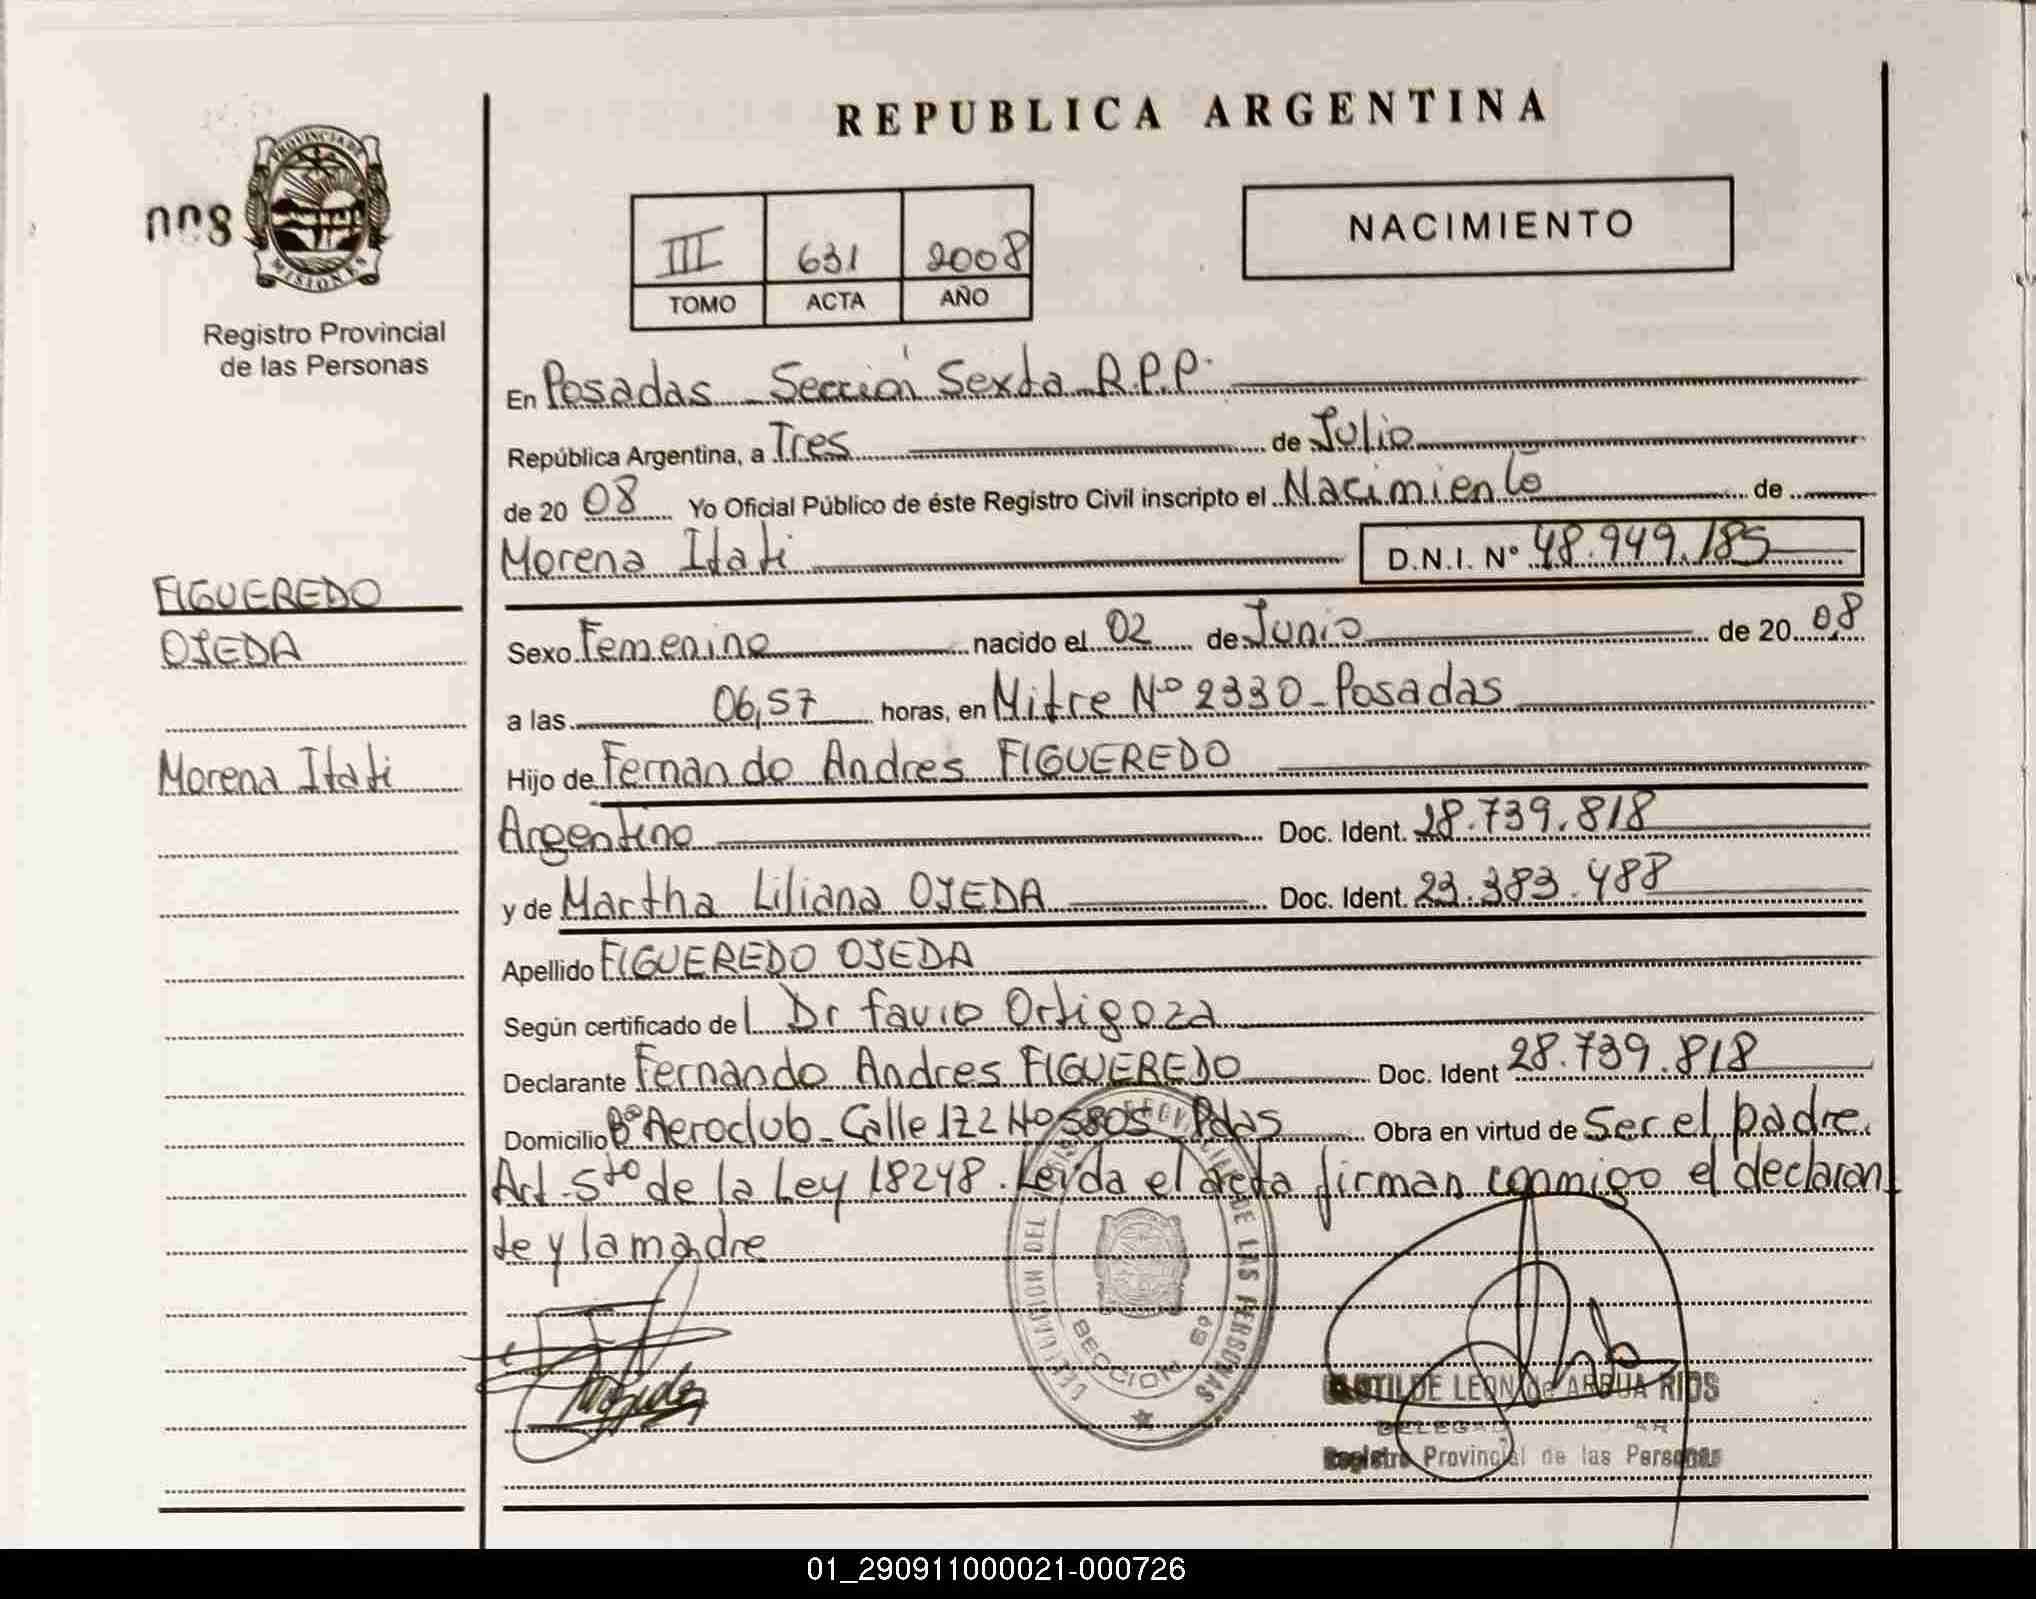 REPUBLICA ARGENTINA
PROVINCIA DE MISIONES
008
Registro Provincial
de las Personas
III 631 2008
TOMO ACTA AÑO
NACIMIENTO
En Posadas - Sección Sexta R.P.P.
República Argentina, a Tres de Julio
de 20 08 Yo Oficial Público de éste Registro Civil inscripto el Nacimiento de
Morena Itati D.N.I. Nº 48.949.185
FIGUEREDO
OJEDA
Morena Itati
Sexo Femenino nacido el 02 de Junio de 20 08
a las 06,57 horas, en Mitre Nº 2330 - Posadas
Hijo de Fernando Andres FIGUEREDO
Argentino Doc. Ident. 28.739.818
y de Martha Liliana OJEDA Doc. Ident. 23.383.488
Apellido FIGUEREDO OJEDA
Según certificado del Dr Favio Ortigoza
Declarante Fernando Andres FIGUEREDO Doc. Ident 28.739.818
Domicilio Bº Aeroclub - Calle 172 Nº 5805 Pdas Obra en virtud de Ser el padre.
Art. 5to de la Ley 18248. Leída el acta firman conmigo el declaran
te y la madre
DE LAS PERSONAS
SECCION 6º
LEON de ARRUA RIOS
Registro Provincial de las Personas
01_290911000021-000726